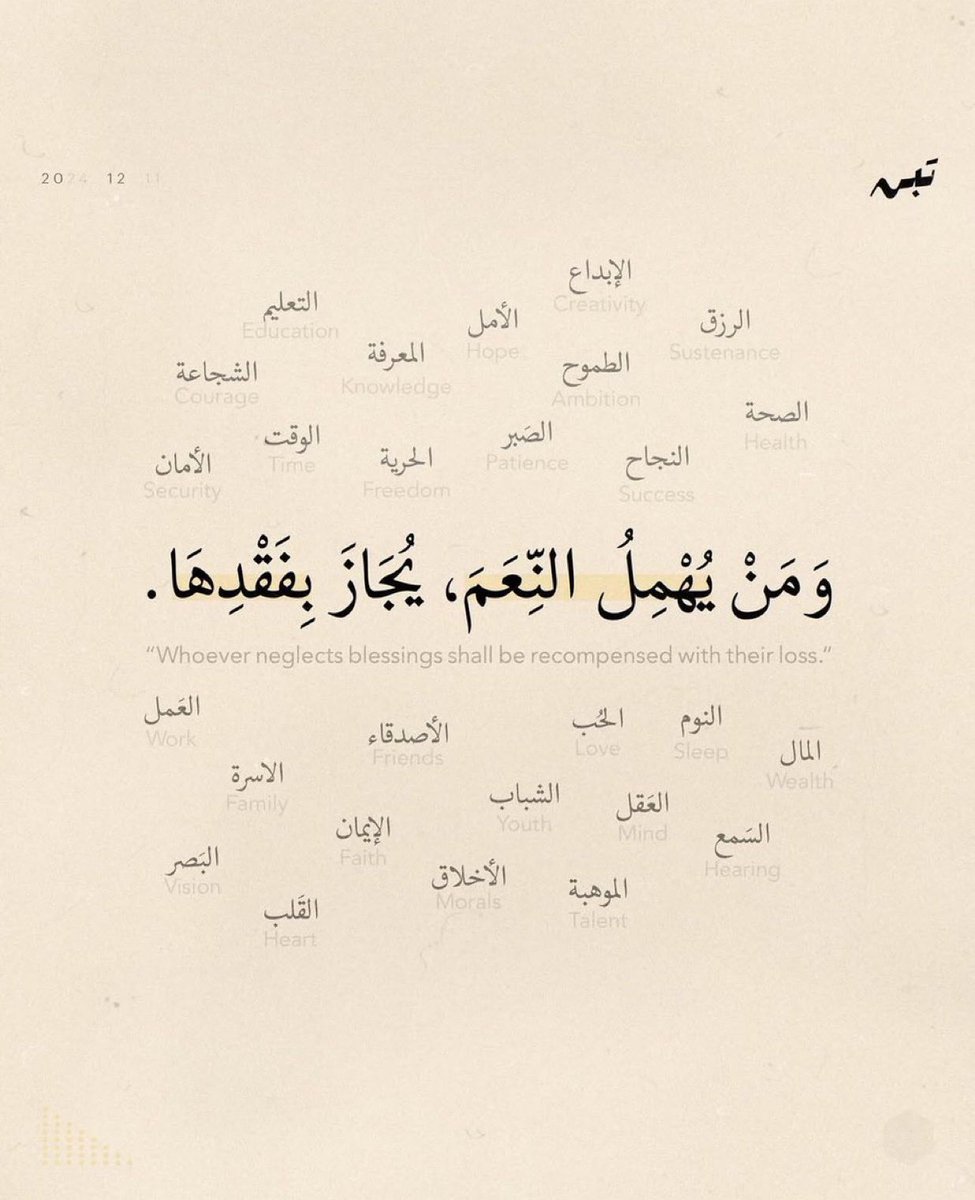 2024 12 11
تبن
الإبداع
Creativity
التعليم
Education
الأمل
Hope
الرزق
Sustenance
المعرفة
Knowledge
الطموح
Ambition
الشجاعة
Courage
الصحة
Health
الوقت
Time
الصَبر
Patience
الحرية
Freedom
النجاح
Success
الأمان
Security
وَمَنْ يُهْمِلُ النِّعَمَ، يُجَازَ بِفَقْدِهَا.
“Whoever neglects blessings shall be recompensed with their loss.”
العَمل
Work
الأصدقاء
Friends
الحُب
Love
النوم
Sleep
المال
Wealth
الاسرة
Family
الشباب
Youth
العَقل
Mind
الإيمان
Faith
السَمع
Hearing
البَصر
Vision
الأخلاق
Morals
الموهبة
Talent
القَلب
Heart